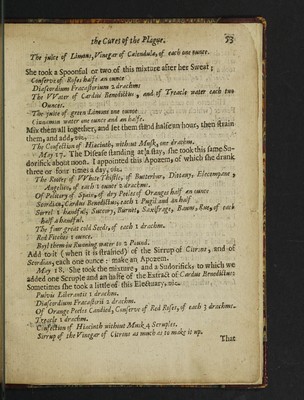 the Cures of the Plague. 73
The juice of Limons, Vinegar of Calendula, of each one ounce.
She took a Spoonful or two of this mixture after her Sweat;
Conserve of Roses halfe an ounce
Diascordium Fracastorium 2 drachms
The VVater of Cardui Benedictus, and of Treacle water each two
Ounces.
The juice of green Limons one ounce
Cinamon water one ounce and an halfe.
Mix them all together, and let them stand halfe an hour, then strain
them, and add, viz.
The Confection of Hiacinth, without Musk, one drachm.
May 17. The Disease standing at a stay, she took this same Su-
dorifick about noon. I appointed this Apozem, of which she drank
three or four times a day, viz.
The Roots of VVhite Thistle, of Butterbur, Dittany, Elecampane,
Angelica, of each 1 ounce 2 drachms.
Of Polipory of Spain, of dry Peiles of Oranges half an ounce
Scordium, Cardus Benedictus, each 1 Pugil and an half
Sorrel 1 handful, Succory, Burnet, Saxifrage, Baum, Rue, of each
Half a handful.
The four great cold Seeds, of each 1 drachm.
Red Fitches 1 ounce.
Boyl them in Running water to 2 Pound.
Add to it (when it is strained) of the Sirrop of Citrons, and of
Scordium, each one ounce: make an Apozem.
May 18. She took the mixture, and a Sudorifick, to which we
added one Scruple and an halfe of the Extract of Cardus Benedictus
Sometimes she took a little of this Electuary, viz.
Pulvis Liberantis 1 drachm.
Diascordium Fracastorii 2 drachm.
Of Orange Peeles Candied, Conserve of Red Roses, of each 3 drachms.
Treacle 1 drachm.
Confection of Hiacinth without Musk 4 Scruples.
Sirrup of the Vinegar of Citrons as much as to make it up.
That